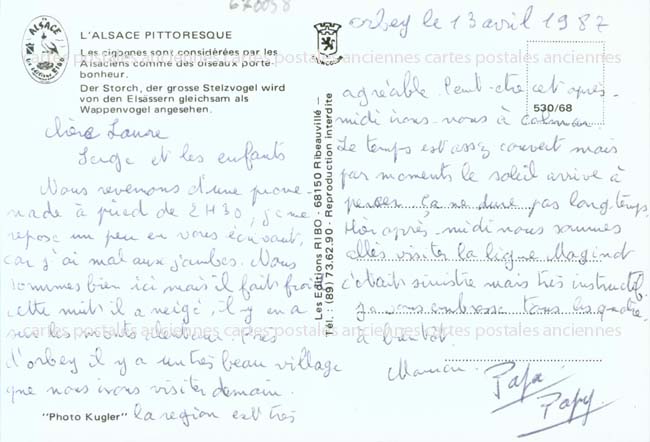 670058
ALSACE
L'ALSACE PITTORESQUE
Les cigognes sont considérées par les
Alsaciens comme des oiseaux porte-
bonheur.
Der Storch, der grosse Stelzvogel wird
von den Elsässern gleichsam als
Wappenvogel angesehen.
Chère Laure
Serge et les enfants
Nous revenons d'une prome-
nade à pied de 2H30, je me
repose un peu en vous écrivant,
car j'ai mal aux jambes. Nous
sommes bien ici mais il fait froid
cette nuit il a neigé, il y en a
sur les monts alentour. Près
d'orbey il y a un très beau village
que nous irons visiter demain.
"Photo Kugler" la région est très
Les Editions RIBO - 68150 Ribeauvillé -
Tél. : (89) 73.62.90 - Reproduction interdite
orbey le 13 avril 1987
agréable Peut-être cet après-
midi irons-nous à Colmar.
530/68
Le temps est assez couvert mais
par moments le soleil arrive à
percer ça ne dure pas longtemps.
Hier après-midi nous sommes
allés visiter la ligne Maginot
c'était sinistre mais très instructif.
je vous embrasse tous les quatre.
à bientôt.
Maman
Papa
Papy
cartes postales anciennes cartes postales anciennes cartes postales anciennes
cartes postales anciennes cartes postales anciennes cartes postales anciennes